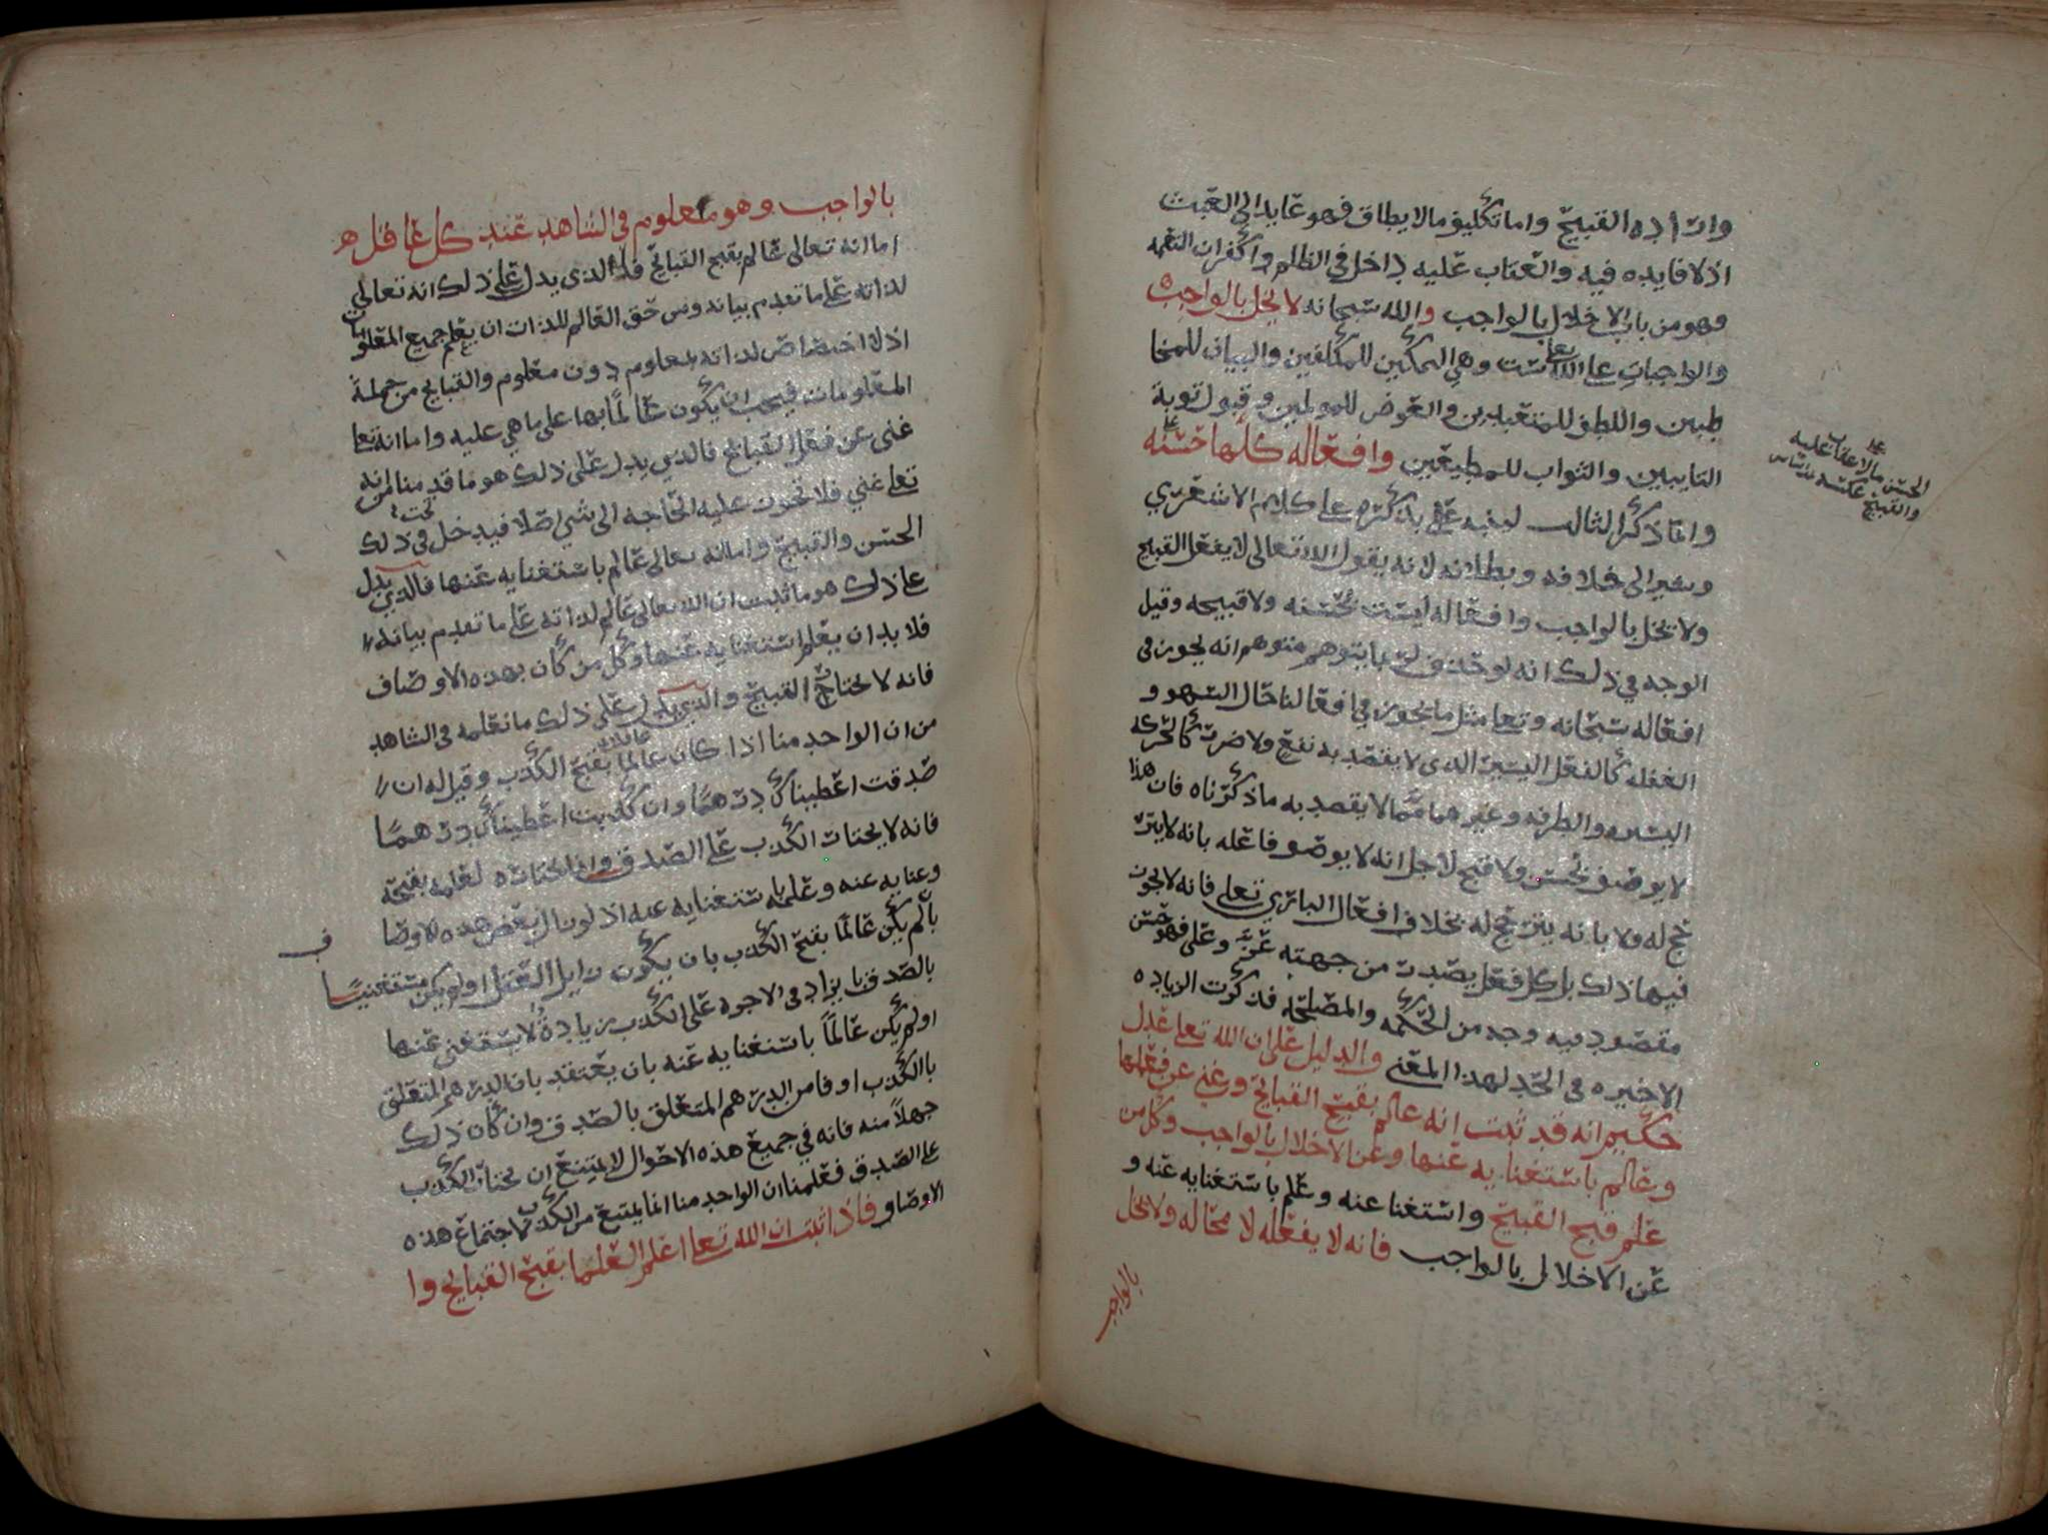 وارادة القبيح واما تكليف مالا يطاق فهو عايد الى العبث
اذ لا فايده فيه والعقاب عليه داخل في الظلم واكفران النعمه
وهو من باب الاخلال بالواجب والله سبحانه لا يخل بالواجب
والواجبات على الله تعا ست وهي التمكين للمكلفين والبيان للمخا
طبين واللطف للمتعبدين والعوض للمولمين وقبول توبة
التايبين والثواب للمطيعين وافعاله كلها حسنه
وانما ذكر الثالث لينبه على بذكره على كلام الاشعري
ويشير الى خلافه وبطلانه لانه يقول الله تعالى لا يفعل القبيح
ولا يخل بالواجب وافعاله ليست بحسنه ولا قبيحه وقيل
الوجه في ذلك انه لو حذف لتوهم متوهم انه يجوز في
افعاله سبحانه وتعا مثل ما يجوز في افعالنا حال السهو و
الغفله كالفعل اليسير الذي لا يقصد به نفع ولا ضرر كالحركه
اليسيره والطرفه وغيرهما مما لا يقصد به ما ذكرناه فان هذا
لا يوصف بحسن ولا قبح لاجل انه لا يوصف فاعله بانه لا يتر
جح له ولا بانه يترجح له بخلاف افعال الباري تعلى فانه لا يجوز
فيها ذلك بل كل فعل يصدر من جهته عز وعلى فهو حسن
مقصود فيه وجه من الحكمه والمصلحه فذكرت الزياده
الاخيره في الحد لهذا المعنى والدليل على ان الله تعلى عدل
حكيم انه قد ثبت انه عالم بقبح القبايح وغني عن فعلها
وعالم باستغنايه عنها وعن الاخلال بالواجب وكل من
علم قبح القبيح واستغنا عنه وعلم باستغنايه عنه و
عن الاخلال بالواجب فانه لا يفعله لا محاله ولا يخل
بالواجب
الحسن مالا عقاب عليه
والقبيح عكسه
بالواجب وهو معلوم في الشاهد عند كل عاقل
اما انه تعالى عالم بقبح القبايح فالذي يدل على ذلك انه تعالى
لذاته على ما تقدم بيانه ومن حق العالم للذات ان يعلم جميع المعلومات
اذ لا اختصاص لذاته بمعلوم دون معلوم والقبايح من جملة
المعلومات فيجب ان يكون عالما بها على ما هي عليه واما انه تعا
غني عن فعل القبايح فالذي يدل على ذلك هو ما قدمنا من انه
تعلى غني فلا تجوز عليه الحاجه الى شي اصلا فيدخل في ذلك
الحسن والقبيح واما انه تعالى عالم باستغنايه عنها فالذي يدل
على ذلك هو ما ثبت ان الله تعالى عالم لذاته على ما تقدم بيانه
فلا بد ان يعلم استغنايه عنها وكل من كان بهذه الاوصاف
فانه لا يختار القبيح والذي يدل على ذلك ما نعلمه في الشاهد
من ان الواحد منا اذا كان عالما بقبح الكذب وقيل له ان
صدقت اعطيناك درهما وان كذبت اعطيناك درهما
فانه لا يختار الكذب على الصدق لعلمه بقبحه
وغنايه عنه وعلمه باستغنايه عنه اذ لو زال بعض هذه الاوصا ف
بان لم يكن عالما بقبح الكذب بان يكون زايل العقل او لم يكن مستغنيا
بالصدق بان يزاد في الاجره على الكذب زيادة لا يستغني عنها
او لم يكن عالما باستغنايه عنه بان يعتقد بان الدرهم المتعلق
بالكذب اوفا من الدرهم المتعلق بالصدق وان كان ذلك
جهلا منه فانه في جميع هذه الاحوال لا يمتنع ان يختار الكذب
على الصدق فعلمنا ان الواحد منا انما يمتنع من الكذب لاجتماع هذه
الاوصاف فاذا ثبت ان الله تعلى اعلم العلما بقبح القبايح وا